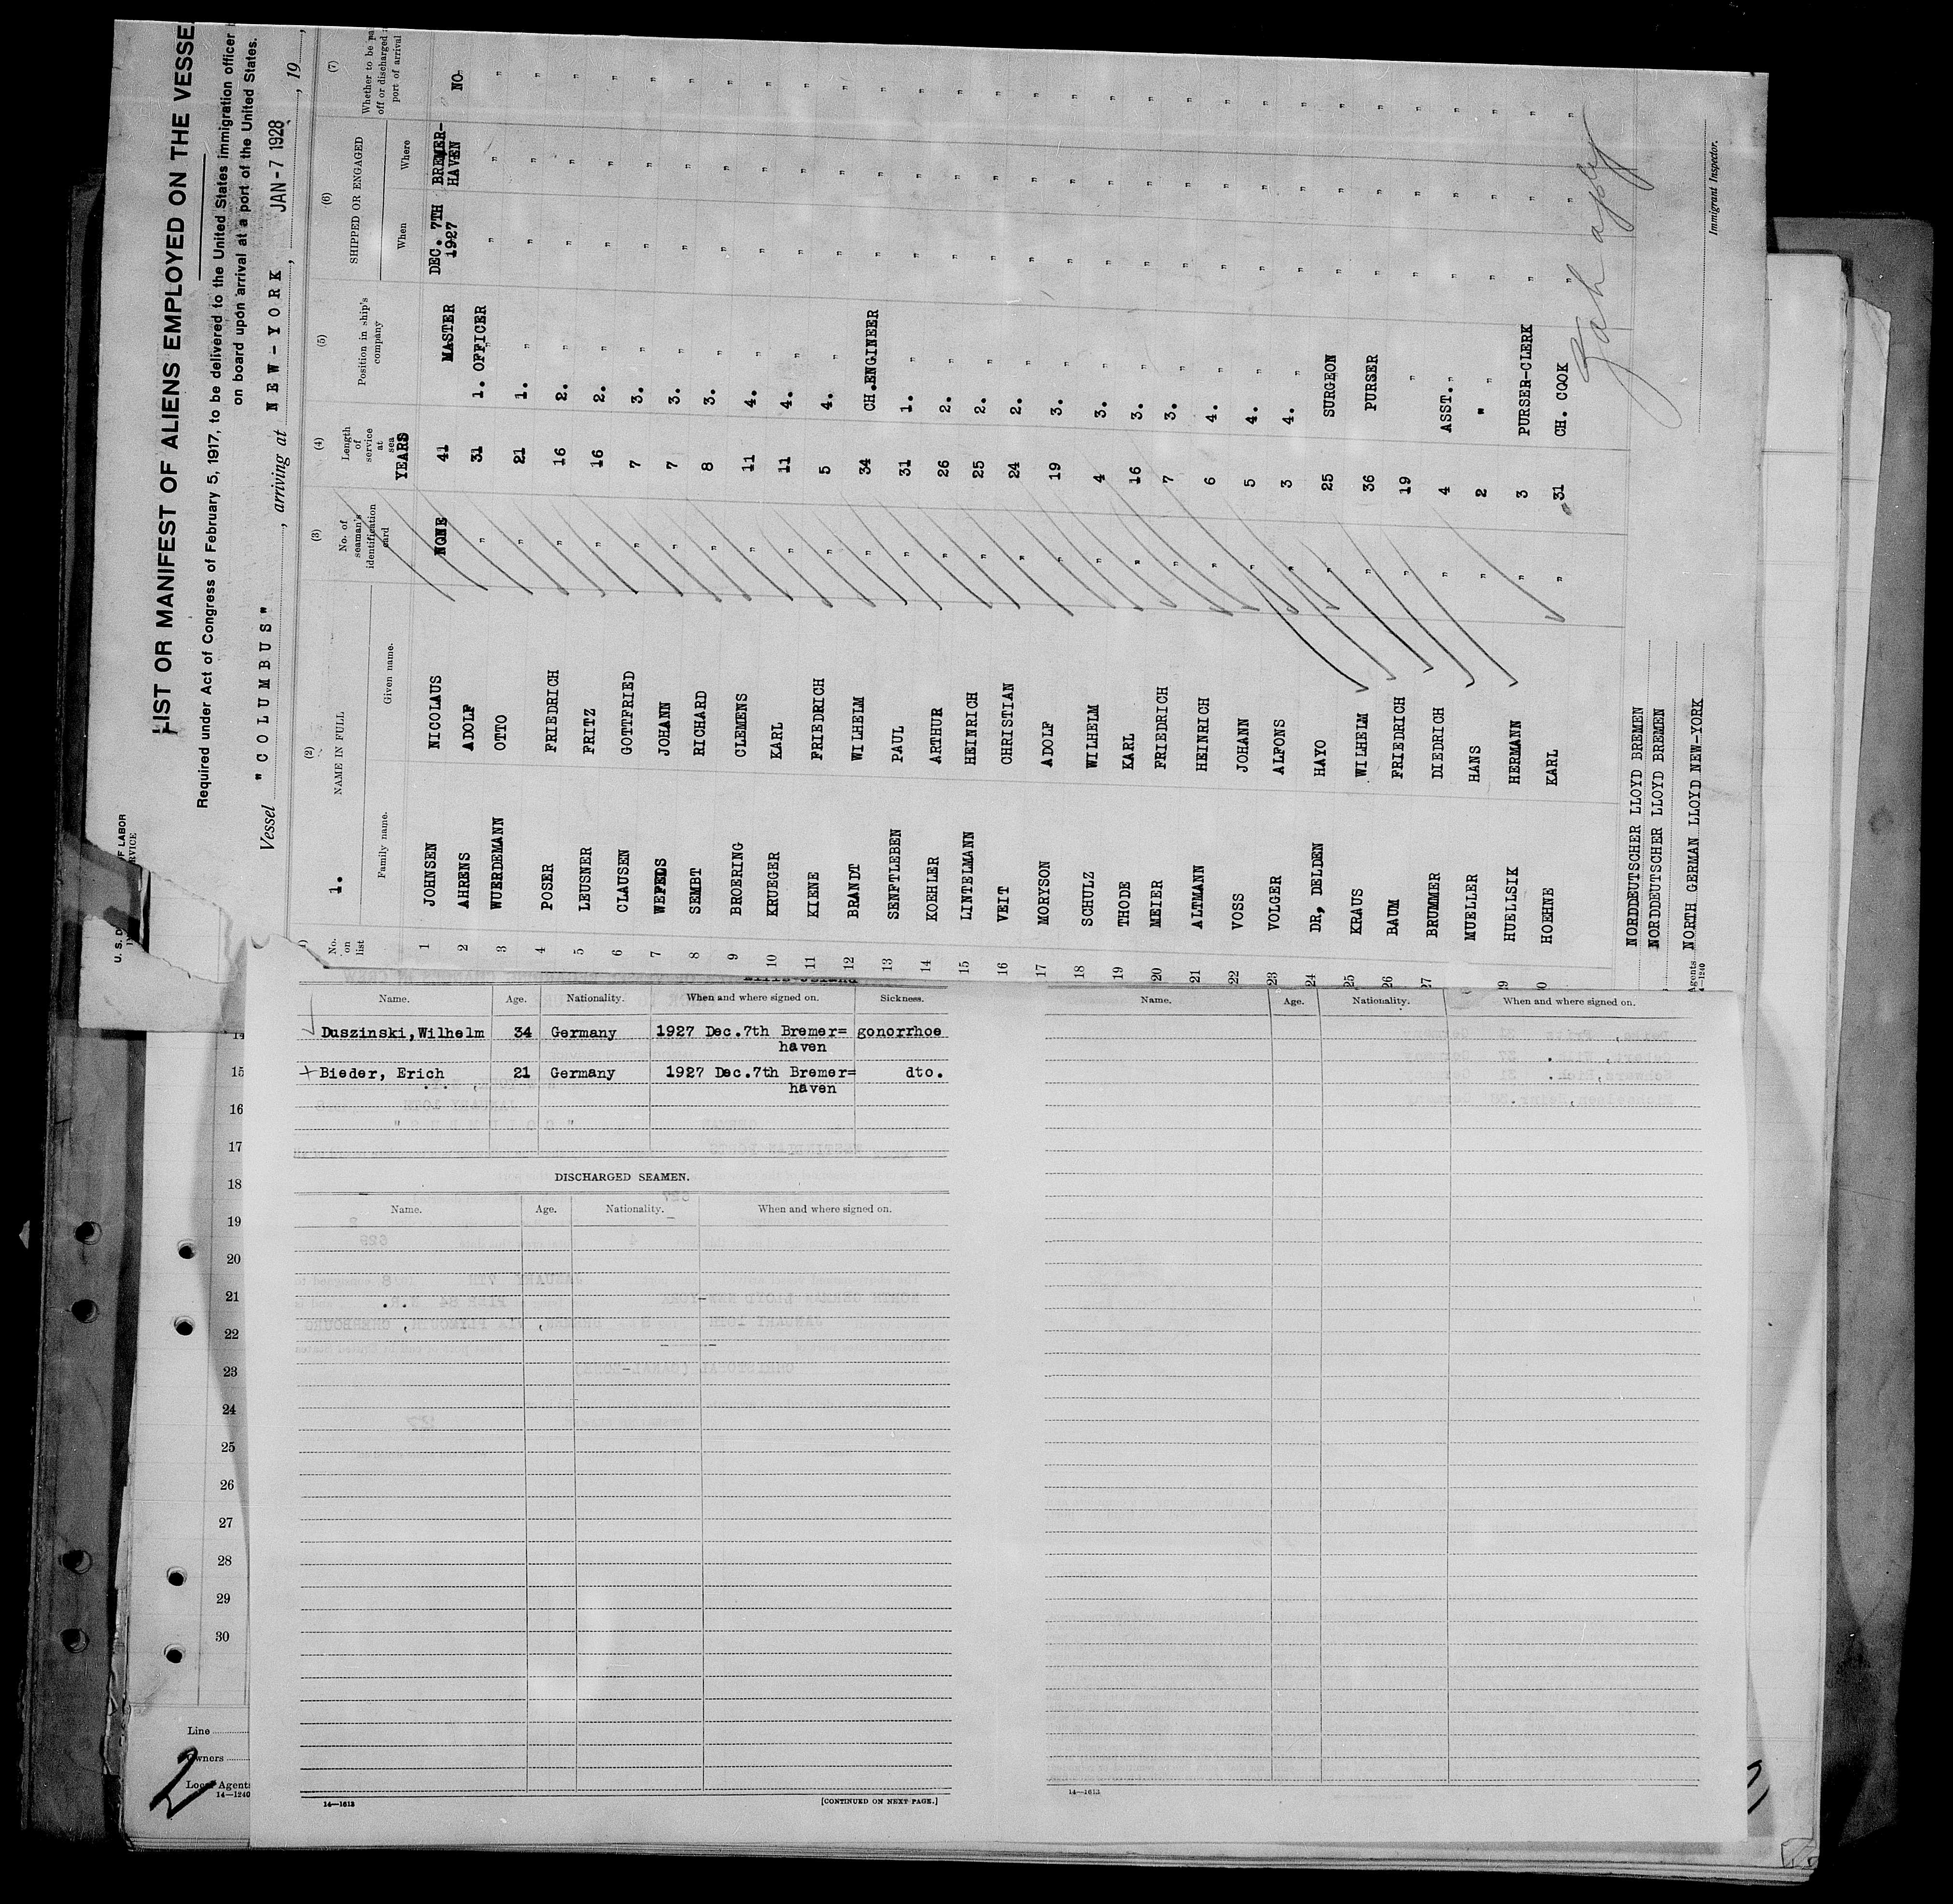 U. S. D OF LABOR
RVICE
LIST OR MANIFEST OF ALIENS EMPLOYED ON THE VESSE
Required under Act of Congress of February 5, 1917, to be delivered to the United States immigration officer
on board upon arrival at a port of the United States.
Vessel "COLUMBUS", arriving at NEW-YORK, JAN-7 1928, 19
1.
(2) (3) (4) (5) (6) (7)
No. on list NAME IN FULL No. of seaman's identification card Length of service at sea Position in ship's company SHIPPED OR ENGAGED Whether to be pa off or discharged port of arrival
Family name. Given name. YEARS When Where
1 JOHNSEN NICOLAUS NONE 41 MASTER DEC. 7TH 1927 BREMER-HAVEN NO
2 AHRENS ADOLF " 31 1. OFFICER " " "
3 WUERDEMANN OTTO " 21 1. " " " "
4 POSER FRIEDRICH " 16 2. " " " "
5 LEUSNER FRITZ " 16 2. " " " "
6 CLAUSEN GOTTFRIED " 7 3. " " " "
7 WEFELDS JOHANN " 7 3. " " " "
8 SEMBT RICHARD " 8 3. " " " "
9 BROERING CLEMENS " 11 4. " " " "
10 KRUEGER KARL " 11 4. " " " "
11 KIENE FRIEDRICH " 5 4. " " " "
12 BRANDT WILHELM " 34 CH.ENGINEER " " "
13 SENFTLEBEN PAUL " 31 1. " " " "
14 KOEHLER ARTHUR " 26 2. " " " "
15 LINTELMANN HEINRICH " 25 2. " " " "
16 VEIT CHRISTIAN " 24 2. " " " "
17 MORYSON ADOLF " 19 3. " " " "
18 SCHULZ WILHELM " 4 3. " " " "
19 THODE KARL " 16 3. " " " "
20 MEIER FRIEDRICH " 7 3. " " " "
21 ALTMANN HEINRICH " 6 4. " " " "
22 VOSS JOHANN " 5 4. " " " "
23 VOLGER ALFONS " 3 4. " " " "
24 DR, DELDEN HAYO " 25 SURGEON " " "
25 KRAUS WILHELM " 36 PURSER " " "
26 BAUM FRIEDRICH " 19 " " " "
27 BRUMMER DIEDRICH " 4 ASST. " " " "
MUELLER HANS " 2 " " " " "
29 HUELLSIK HERMANN " 3 PURSER-CLERK " " "
0 HOEHNE KARL " 31 CH. COOK " " "
NORDDEUTSCHER LLOYD BREMEN
NORDDEUTSCHER LLOYD BREMEN
Agents NORTH GERMAN LLOYD NEW-YORK
4-1240
Immigrant Inspector.
Name. Age. Nationality. When and where signed on. Sickness.
Duszinski,Wilhelm 34 Germany 1927 Dec.7th Bremer= gonorrhoe
haven
Bieder, Erich 21 Germany 1927 Dec.7th Bremer= dto.
haven
DISCHARGED SEAMEN.
Name. Age. Nationality. When and where signed on.
14—1613
[CONTINUED ON NEXT PAGE.]
Name. Age. Nationality. When and where signed on.
14—1613
14
15
16
17
18
19
20
21
22
23
24
25
26
27
28
29
30
Line
Owners
Local Agents
14—1240
2